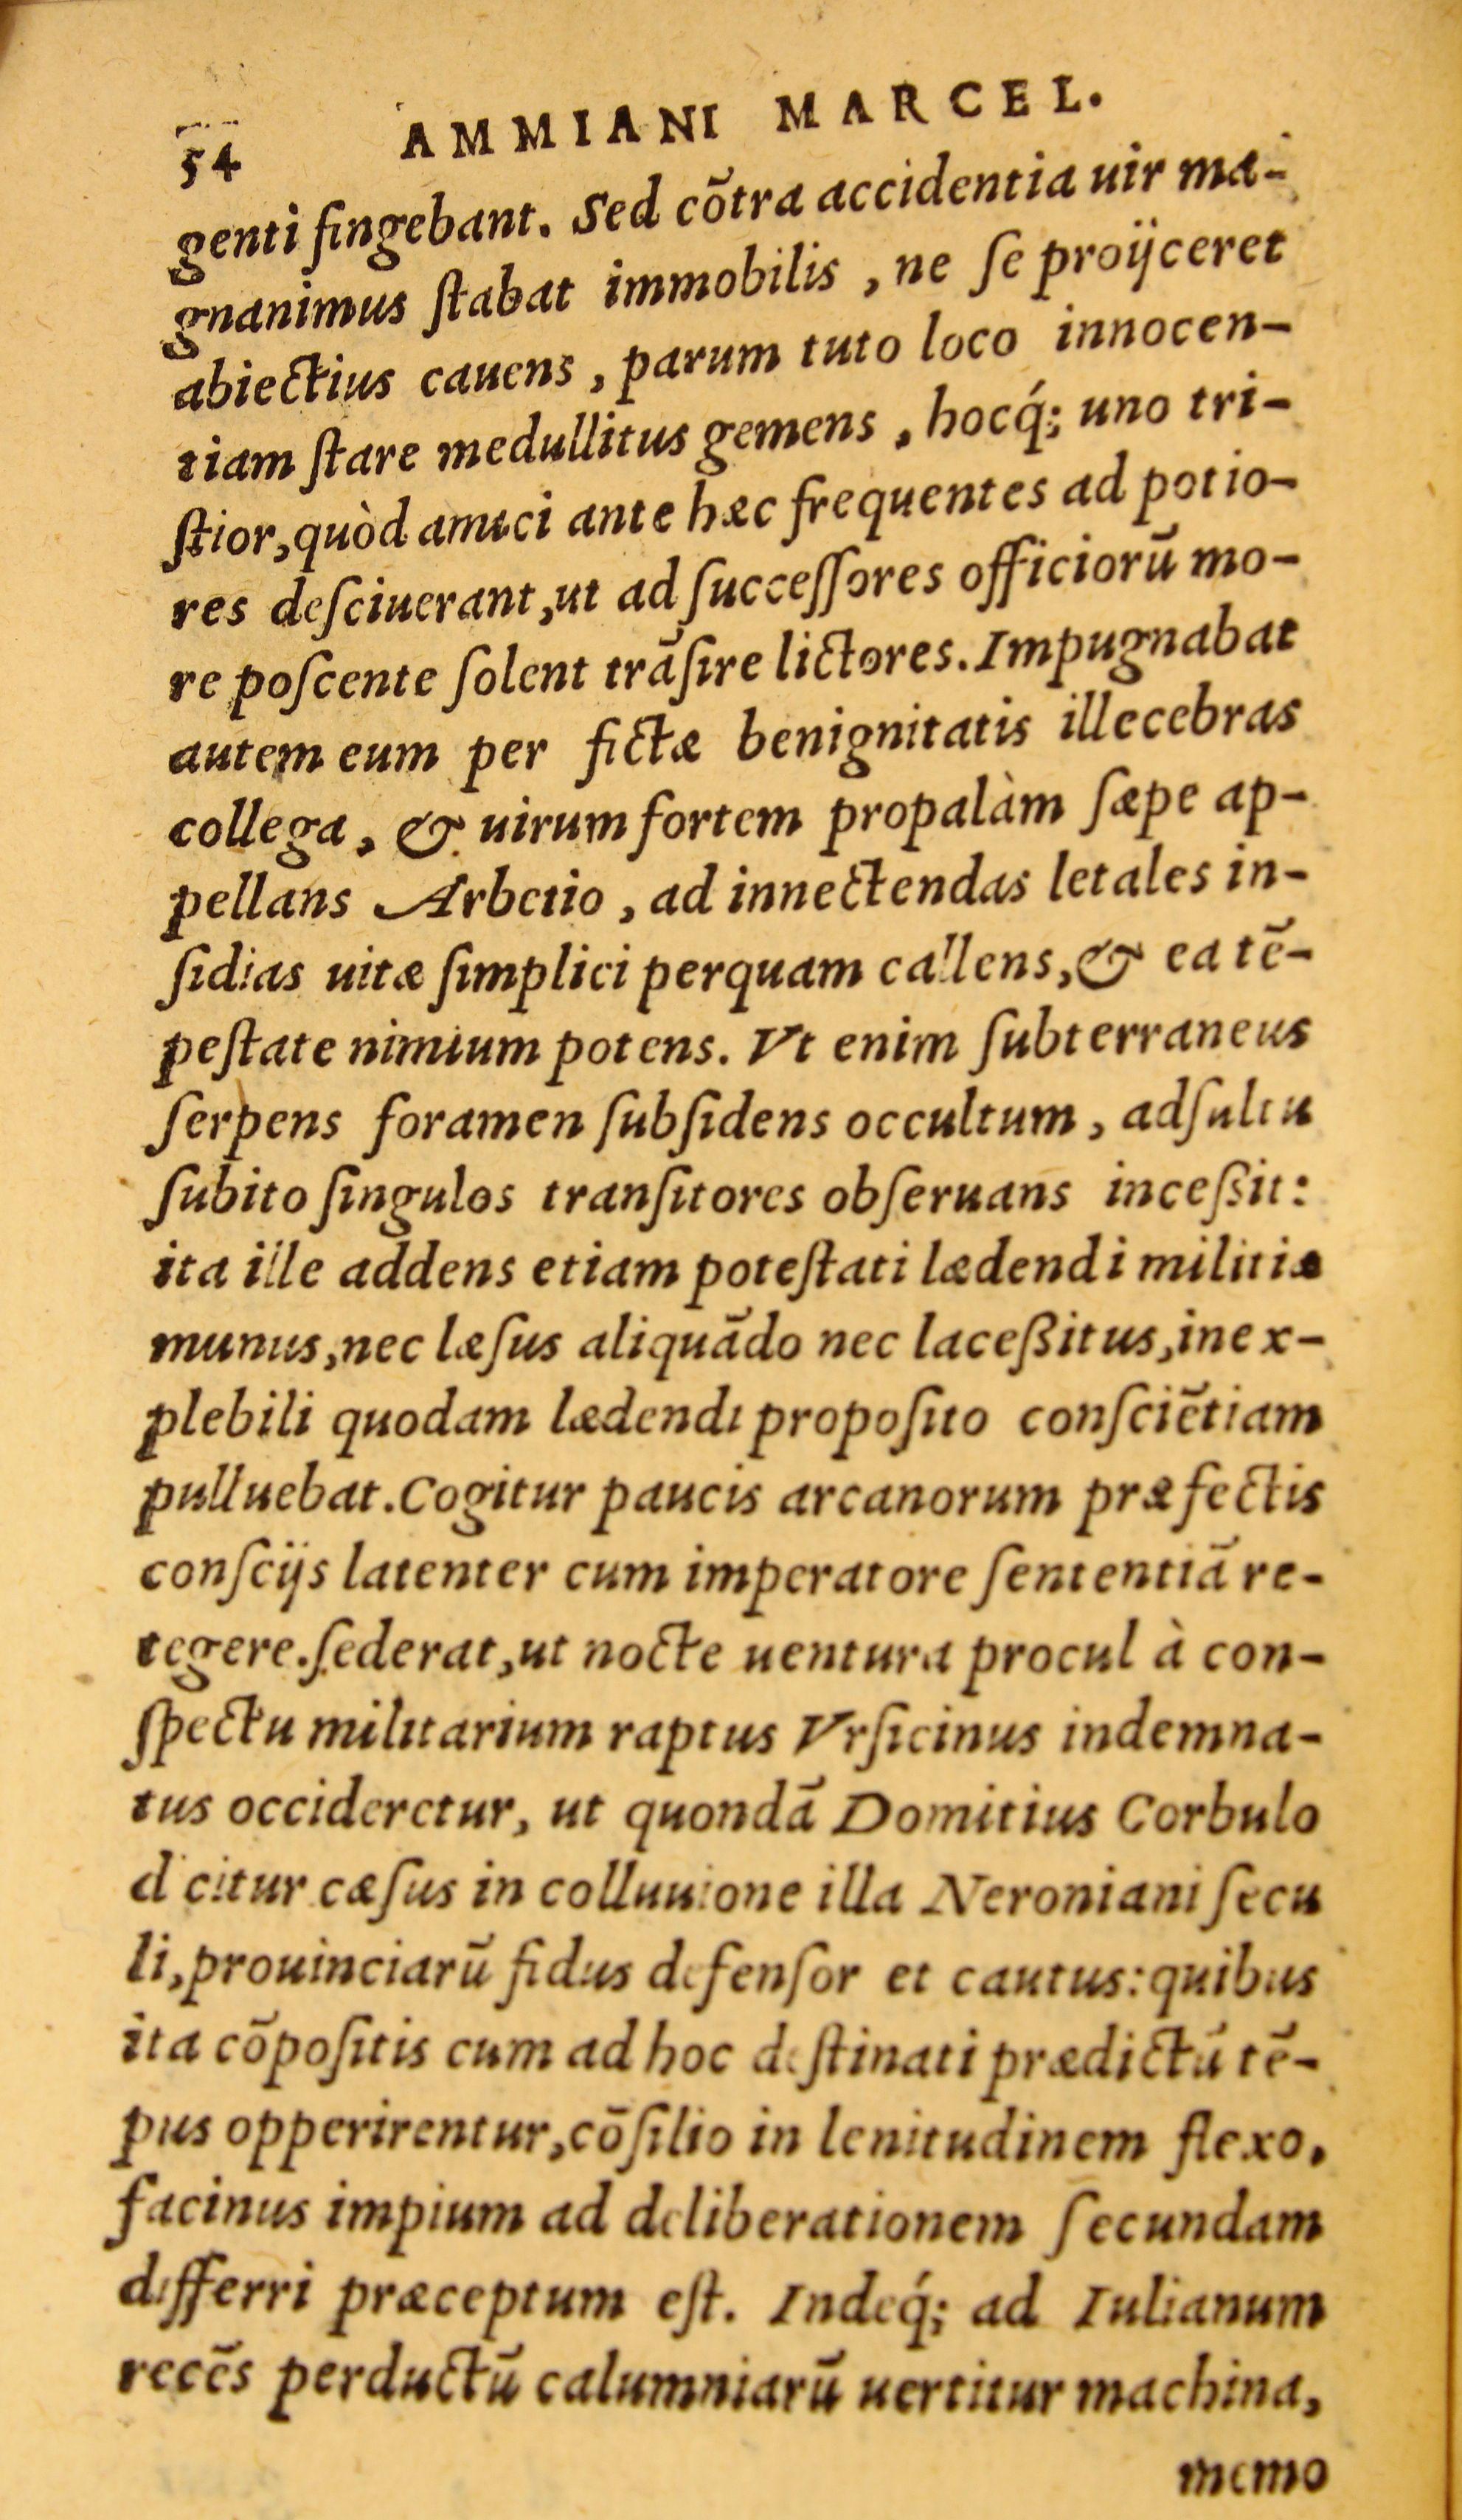 54 AMMIANI MARCEL.
genti fingebant. Sed cõtra accidentia uir ma-
gnanimus ſtabat immobilis, ne ſe proijceret
abiectius cauens, parum tuto loco innocen-
tiam ſtare medullitus gemens, hocq́; uno tri-
ſtior, quòd amici ante hæc frequentes ad potio-
res deſciuerant, ut ad ſucceſſores officiorũ mo-
re poſcente ſolent trãſire lictores. Impugnabat
autem eum per fictæ benignitatis illecebras
collega, & uirum fortem propalàm ſæpe ap-
pellans Arbetio, ad innectendas letales in-
ſidias uitæ ſimplici perquam callens, & ea tẽ-
peſtate nimium potens. Vt enim ſubterraneus
ſerpens foramen ſubſidens occultum, adſultu
ſubito ſingulos tranſitores obſeruans inceßit:
ita ille addens etiam poteſtati lædendi militiæ
munus, nec læſus aliquãdo nec laceßitus, inex-
plebili quodam lædendi propoſito conſciẽtiam
pulluebat. Cogitur paucis arcanorum præfectis
conſcijs latenter cum imperatore ſententiã re-
tegere. ſederat, ut nocte uentura procul à con-
ſpectu militarium raptus Vrſicinus indemna-
tus occideretur, ut quondã Domitius Corbulo
dicitur cæſus in colluuione illa Neroniani ſecu
li, prouinciarũ fidus defenſor et cautus: quibus
ita cõpoſitis cum ad hoc deſtinati prædictũ tẽ-
pus opperirentur, cõſilio in lenitudinem flexo,
facinus impium ad deliberationem ſecundam
differri præceptum eſt. Indeq́; ad Iulianum
recẽs perductũ calumniarũ uertitur machina,
memo